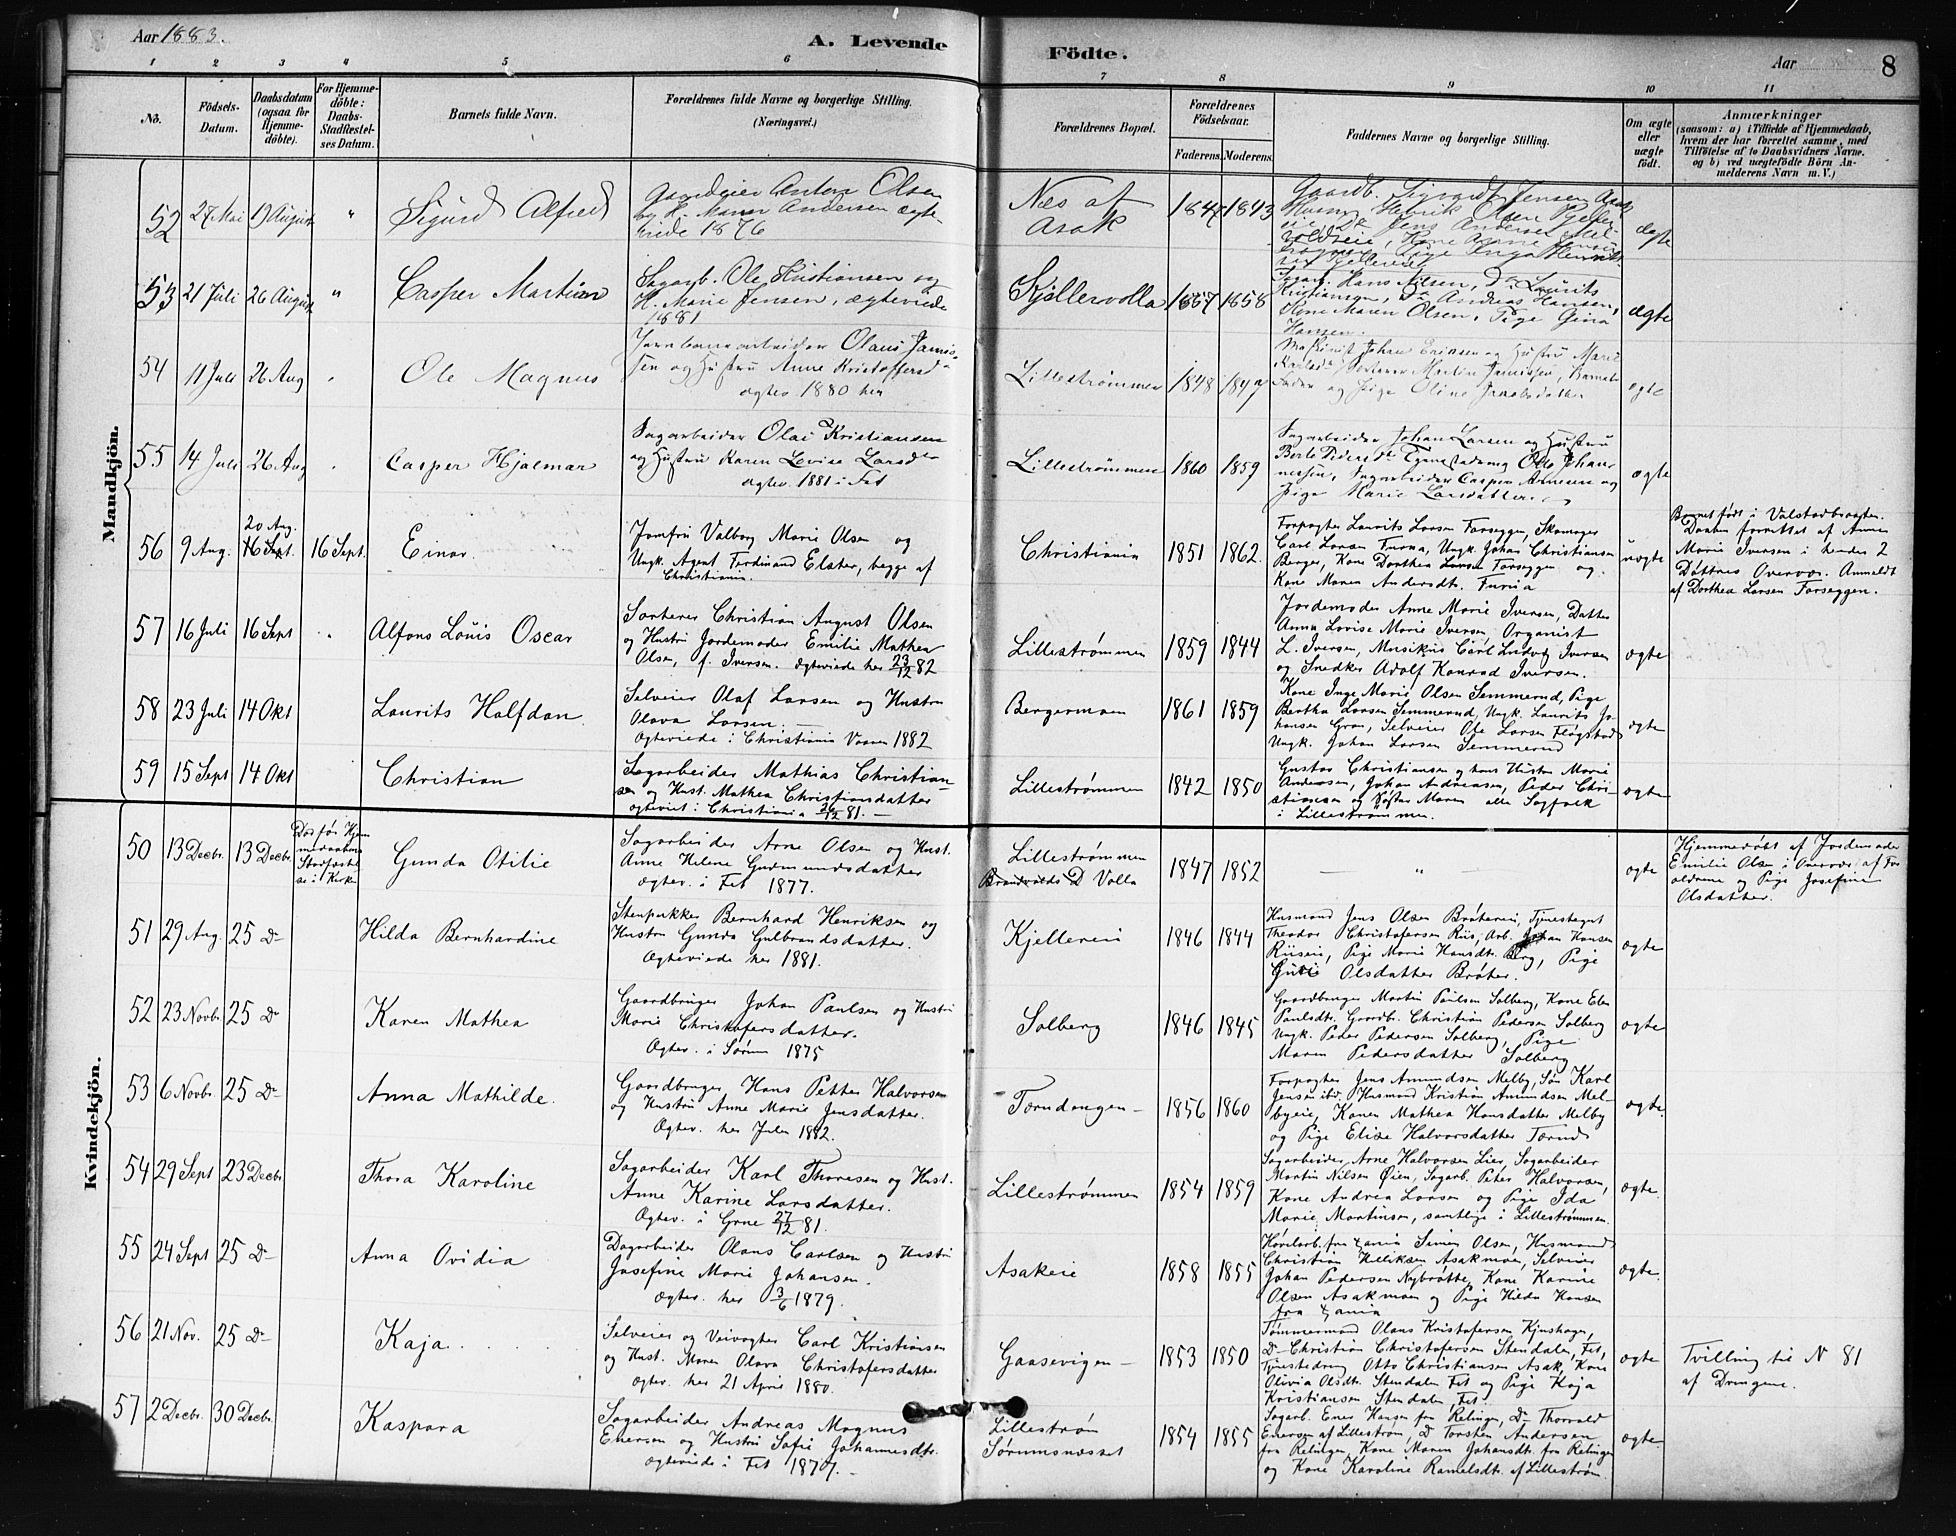 Aar 1883.
A. Levende
Födte.
Aar
8
1 2 3 4 5 6 7 8 9 10 11
No.
Födsels-
Datum.
Daabsdatum
(ogsaa for
Hjemme-
döbte).
For Hjemme-
döbte:
Daabs-
Stadfæstel-
ses Datum.
Barnets fulde Navn.
Forældrenes fulde Navne og borgerlige Stilling.
(Næringsvei.)
Forældrenes Bopæl.
Forældrenes
Födselsaar.
Faderens. Moderens.
Faddernes Navne og borgerlige Stilling.
Om ægte
eller
uægte
födt.
Anmærkninger
(saasom: a) i Tilfælde af Hjemmedaab,
hvem der har forrettet samme, med
Tilföielse af to Daabsvidners Navne.
og b) ved uægtefödte Börn An-
melderens Navn m. V.)
Mandkjön.
52 27 Mai 19 August " Sigurd Alfred
Gaardeier Anton Olsen
Maren Andersen ægte-
viede 1876
Næs af
Asak
1843
Gaardb. Sigvardt Jensen Asak
Henrik Olsen
Jens Andersen
ægte
53 21 Juli 26 August " Casper Martin
Sagarb. Ole Kristiansen og
H. Marie Jensen, ægteviede
1881
Kjellervolla
1857 1858
Sagarb. Hans Nilsen, Do Laurits
Kristiansen, Do Andreas Hansen,
Kone Maren Olsen, Pige Gina
Hansen.
ægte
54 11 Juli 26 Aug " Ole Magnus
Jernbanearbeider Olaus Jonis-
sen og Hustru Anne Kristoffersd
ægtev 1880 her
Lillestrømmen
1848 1847
Maskinist Johan Eriksen og Hustru Marie
Martin
og Pige Oline Jacobsdatter
ægte
55 14 Juli 26 Aug " Casper Hjalmar
Sagarbeider Olai Kristiansen
og Hustru Karen Levise Larsdtr
ægtev. 1881 i Fet
Lillestrømmen
1860 1859
Sagarbeider Johan Larsen og Hustru
Berte Peders dtr Tjenestedreng Otto Johan-
nessen, Sagarbeider Casper Arnesen og
Pige Marie Larsdatter.
ægte
56 9 Aug. 20 Aug. 16 Sept. 16 Sept. Einar.
Jomfru Valborg Marie Olsen og
Ungk. Agent Ferdinand Elster, begge af
Christiania
Christiania
1851 1862
Forpagter Laurits Larsen Farseggen, Skomager
Carl Larsen Furua, Ungk. Johan Christiansen
Berger, Kone Dorthea Larsen Farseggen og
Kone Maren Andersdt. Furua
uægte
Barnet født i Valstadbraaten.
Daaben forrettet af Anne
Marie Iversen i hendes 2
Døttres Overvær. Anmeldt
af Dorthea Larsen Farseggen.
57 16 Juli 16 Sept " Alfons Louis Oscar
Sorterer Christian August Olsen
og Hustru Jordemoder Emilie Mathea
Olsen, f. Iversen. ægteviede her 23/12 82
Lillestrømmen
1859 1844
Jordemoder Anne Marie Iversen, Datter
Anna Lovise Marie Iversen, Organist
L. Iversen, Musikus Carl Ludvig Iversen
og Snedker Adolf Konrad Iversen.
ægte
58 23 Juli 14 Okt Laurits Halfdan.
Selveier Olaf Larsen og Hustru
Olava Larsen.
Ægteviede i Christiania Vaaren 1882
Bergermoen
1861 1859
Kone Inge Marie Olsen Semmerud, Pige
Bertha Larsen Semmerud, Ungk. Laurits Jo-
hansen Gran, Selveier Ole Larsen Flögstad
Ungk. Johan Larsen Semmerud
ægte
59 15 Sept 14 Okt Christian
Sagarbeider Mathias Christian-
sen og Hust. Mathea Christiansdatter
ægteviet i Christiania 26/12 81.
Lillestrømmen
1842 1850
Gustav Christiansen og hans Hustru Marie
Andersen, Johan Andreasen, Peder Chri-
stiansen og Søster Maren alle Sagfolk
i Lillestrømmen.
ægte
Kvindekjön.
50 13 Decbr. 13 Decbr.
Död før Hjem
medaabens
Stadfæstel
se i Kirken
Gunda Otilie
Sagarbeider Arne Olsen og Hust.
Anne Helene Gudmundsdatter
Ægtev. i Fet 1877.
Lillestrømmen
Brandvolds D Volla
1847 1852
— " —
ægte
Hjemmedøbt af Jordemoder
Emilie Olsen i Overvær af For
ældrene og Pige Josefine
Olsdatter.
51 29 Aug. 25 Do Hilda Bernhardine
Stenpukker Bernhard Henriksen og
Hustru Gunda Gulbrandsdatter.
Ægteviede her 1881.
Kjellereie
1846 1844
Husmand Jens Olsen Bråtereie, Tjenestegut
Theodor Christofersen Riis, Arb. Johan Hansen
Riiseie, Pige Marie Hansdt. Berg, Pige
Olsdatter Bråter.
ægte
52 23 Novbr. 25 Do Karen Mathea
Gaardbruger Johan Paulsen og Hustru
Marie Christofersdatter.
Ægtev. i Sørum 1875
Solberg
1846 1845
Gaardbruger Martin Paulsen Solberg, Kone Elen
Paulsdt. Gaardb. Christian Pedersen Solberg
Ungk. Peder Pedersen Solberg, Pige
Maren Pedersdatter Solberg
ægte
53 6 Novbr. 25 Do Anna Mathilde.
Gaardbruger Hans Petter Halvorsen
og Hustru Anne Marie Jensdatter.
Ægtev. her Julen 1882.
Tærudengen —
1856 1860
Forpagter Jens Amundsen Melby, Søn Karl
Jensen ibd. Husmand Kristian Amundsen Mel-
byeie, Konen Mathea Hansdatter Melby
og Pige Elise Halvorsdatter Tærud
ægte.
54 29 Sept 23 Decbr. Thora Karoline
Sagarbeider Karl Thoresen og Hust.
Anne Karine Larsdatter.
Ægtev. i Grue 27/12 81.
Lillestrømmen
1854 1859
Sagarbeider Arne Halvorsen Lier, Sagarbeider
Martin Nilsen Øien, Sagarb. Peter Halvorsen,
Kone Andrea Larsen og Pige Ida
Marie Martinsen, samtlige i Lillestrømmen.
ægte.
55 24 Sept 25 Do Anna Ovidia
Dagarbeider Olaus Carlsen og Hustru
Josefine Marie Johansen.
Ægtev. her 3/6 1879.
Asakeie
1858 1855
Simen Olsen, Husmand
Christian Kelliksen Asakmoen, Selveier
Johan Pedersen Nybråtte, Kone Karine
Olsen Asakmoen og Pige Hilda Hansen
fra Xania
ægte.
56 21 Nov. 25 Do Kaja
Selveier og Veivogter Carl Kristiansen
og Hust. Maren Olava Christofersdatter
Ægtev. her 21 April 1880.
Gaasevigen —
1853 1850
Tømmermand Olaus Kristofersen Kjushagen,
Do Christian Christofersen Stendalen, Fet,
Tjenestedreng Otto Christiansen Asak, Kone
Olivia Olsdt. Stendalen Fet og Pige Kaja
Kristiansen Stendalen, Fet.
ægte
Tvilling til N 81
af Drengene.
57 2 Decbr. 30 Decbr. Kaspara
Sagarbeider Andreas Magnus
Enersen og Hustru Sofie Johannesdt.
Ægteviede i Fet 1877. —
Lillestrøm
Sørumsnesset
1854 1855
Sagarb. Ener Hansen fra Rælingen, Do Thorvald
Enersen af Lillestrøm, D Torsten Andersen
fra Rælingen, Kone Maren Johansdt. fra Rælingen
og Kone Karoline Ramelsdt. af Lillestrøm.
ægte.